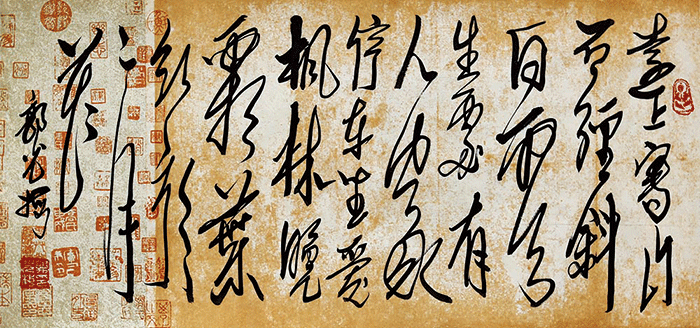 遠上寒山
石徑斜
白雲
生處有
人家
停車坐愛
楓林晚
霜葉
紅於
二月
花